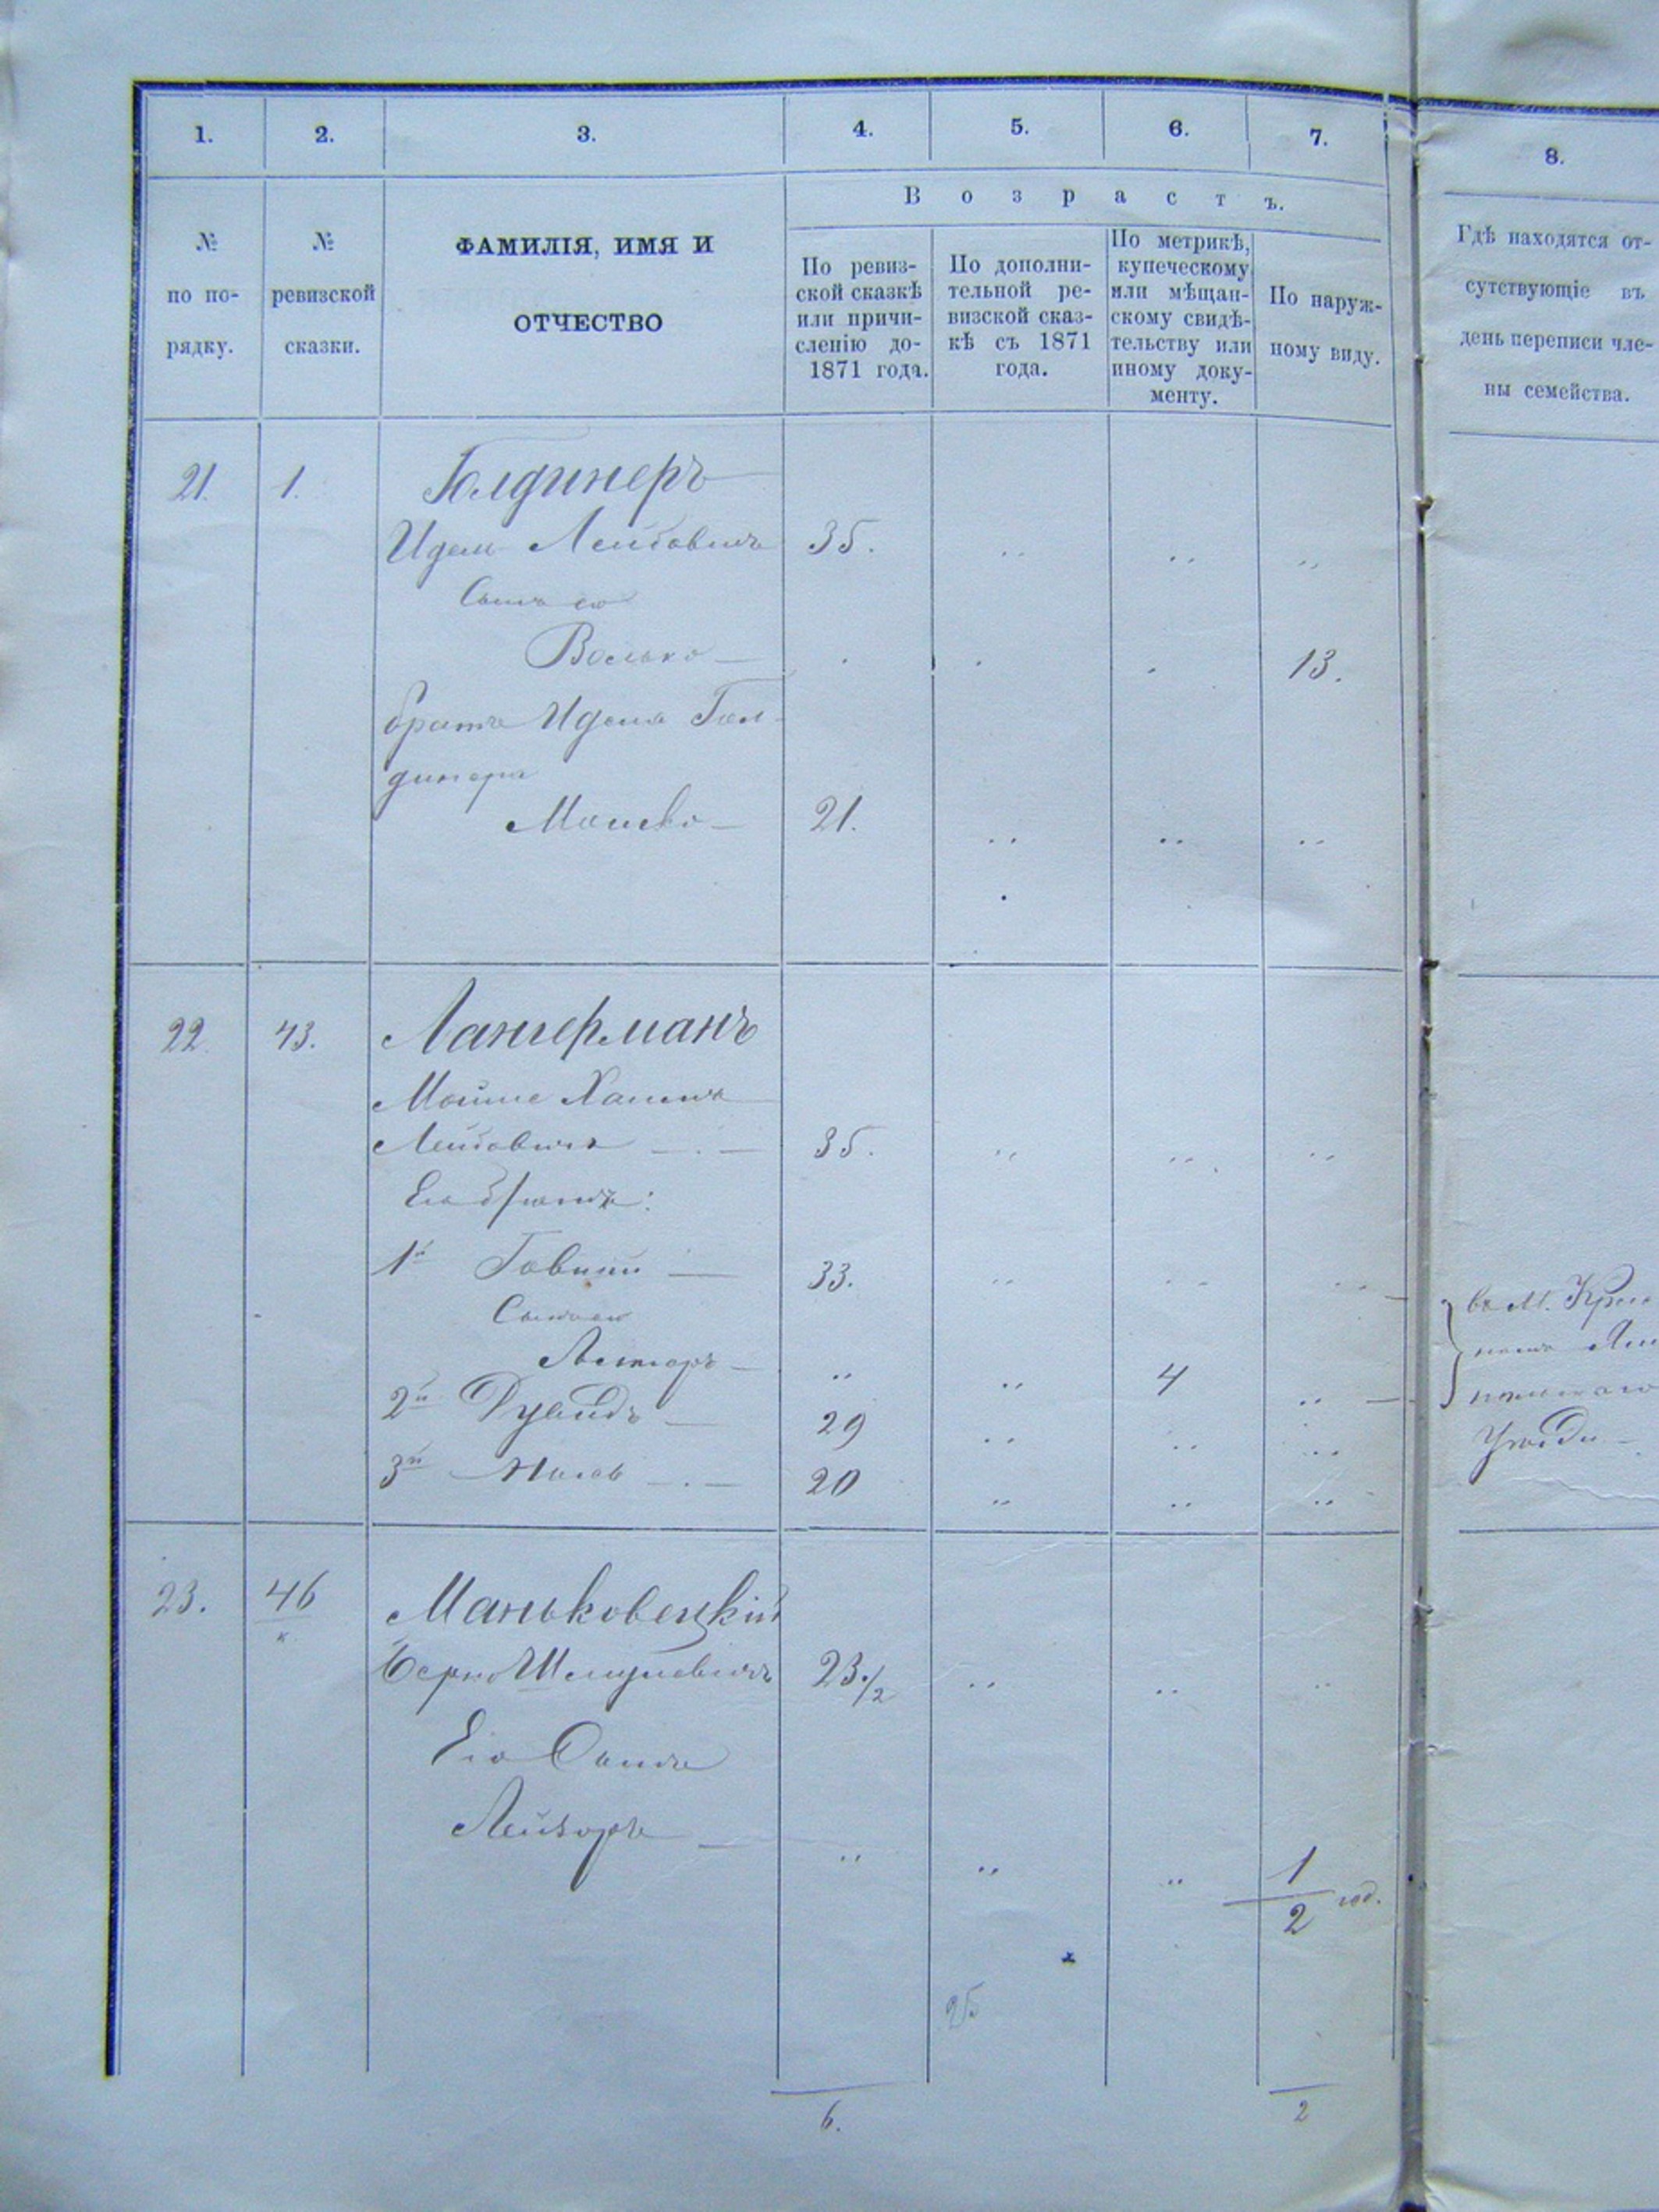 1. 2. 3. 4. 5. 6. 7. 8.
№ по по-рядку.
№ ревизской сказки.
ФАМИЛІЯ, ИМЯ И
ОТЧЕСТВО
Возрастъ.
По ревиз-
ской сказкѣ
или причи-
сленію до-
1871 года.
По дополни-
тельной ре-
визской сказ-
кѣ съ 1871
года.
По метрикѣ,
купеческому
или мѣщан-
скому свидѣ-
тельству или
иному доку-
менту.
По наруж-
ному виду.
Гдѣ находятся от-
сутствующіе въ
день переписи чле-
ны семейства.
21. 1. Голдинеръ
Идель Лейбовичъ 35. " " "
Сынъ его
Волько — 13.
братъ Иделя Гол-
динера
Мошко — 21. " " "
22. 43. Лангерманъ
Мойше Хаимъ
Лейбовичъ 35. " " "
Его братья:
1й — 33. " " "
Сынъ его
— " " 4 "
2й Дувидъ — 29 " " "
3й 20 " " "
въ М.
23. 46
к.
Маньковецкій
Берко Шмулевичъ 23½ " " "
Его Сынъ
Лейзоръ — " " " 1/2 год.
25
6. 2